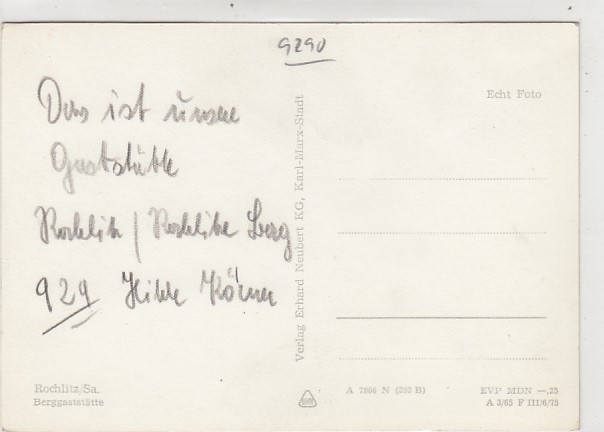 9290
Das ist unsere
Gaststätte
Rochlitz / Rochlitzer Berg
929 Hilde Körner
Rochlitz/Sa.
Berggaststätte
Verlag Erhard Neubert KG, Karl-Marx-Stadt
Echt Foto
A 7806 N (293 B)
EVP MDN —,25
A 3/65 F III/6/75